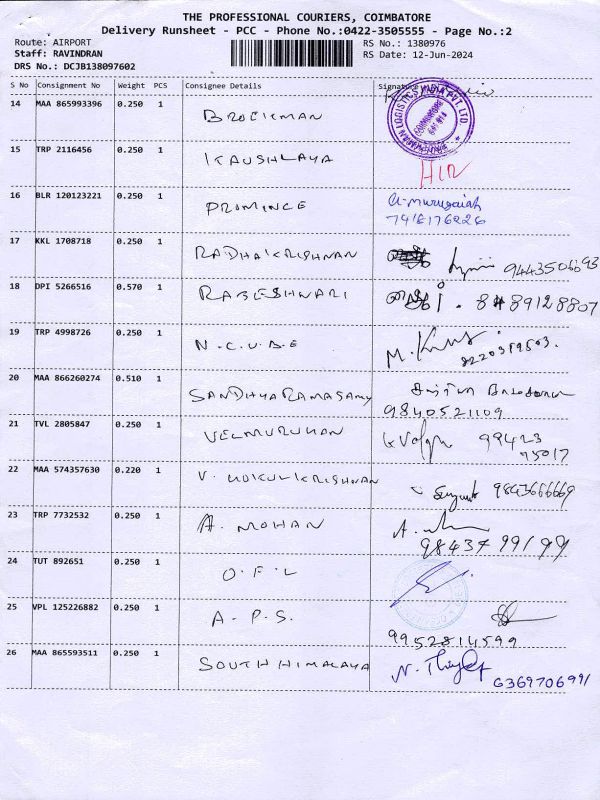 THE PROFESSIONAL COURIERS, COIMBATORE
Delivery Runsheet - PCC - Phone No.:0422-3505555 - Page No.:2
Route: AIRPORT RS No.: 1380976
Staff: RAVINDRAN RS Date: 12-Jun-2024
DRS No.: DCJB138097602
S No Consignment No Weight PCS Consignee Details Signature
14 MAA 865993396 0.250 1 BROEKMAN
15 TRP 2116456 0.250 1 KAUSHLAYA
16 BLR 120123221 0.250 1 PROMINCE a. murugaiah
17 KKL 1708718 0.250 1 RADHAKRISHNAN
18 DPI 5266516 0.570 1 RAJESHWARI
19 TRP 4998726 0.250 1 N.C.U.B.E
20 MAA 866260274 0.510 1 SANDHYA RAMASAMY
9840521109
21 TVL 2805847 0.250 1 VELMURUHAN 99423
75017
22 MAA 574357630 0.220 1 V. 9843666669
23 TRP 7732532 0.250 1 A. MOHAN
9843799199
24 TUT 892651 0.250 1 O.F.L
25 VPL 125226882 0.250 1 A.P.S.
9952814599
26 MAA 865593511 0.250 1 SOUTH HIMALAYA 6369706991